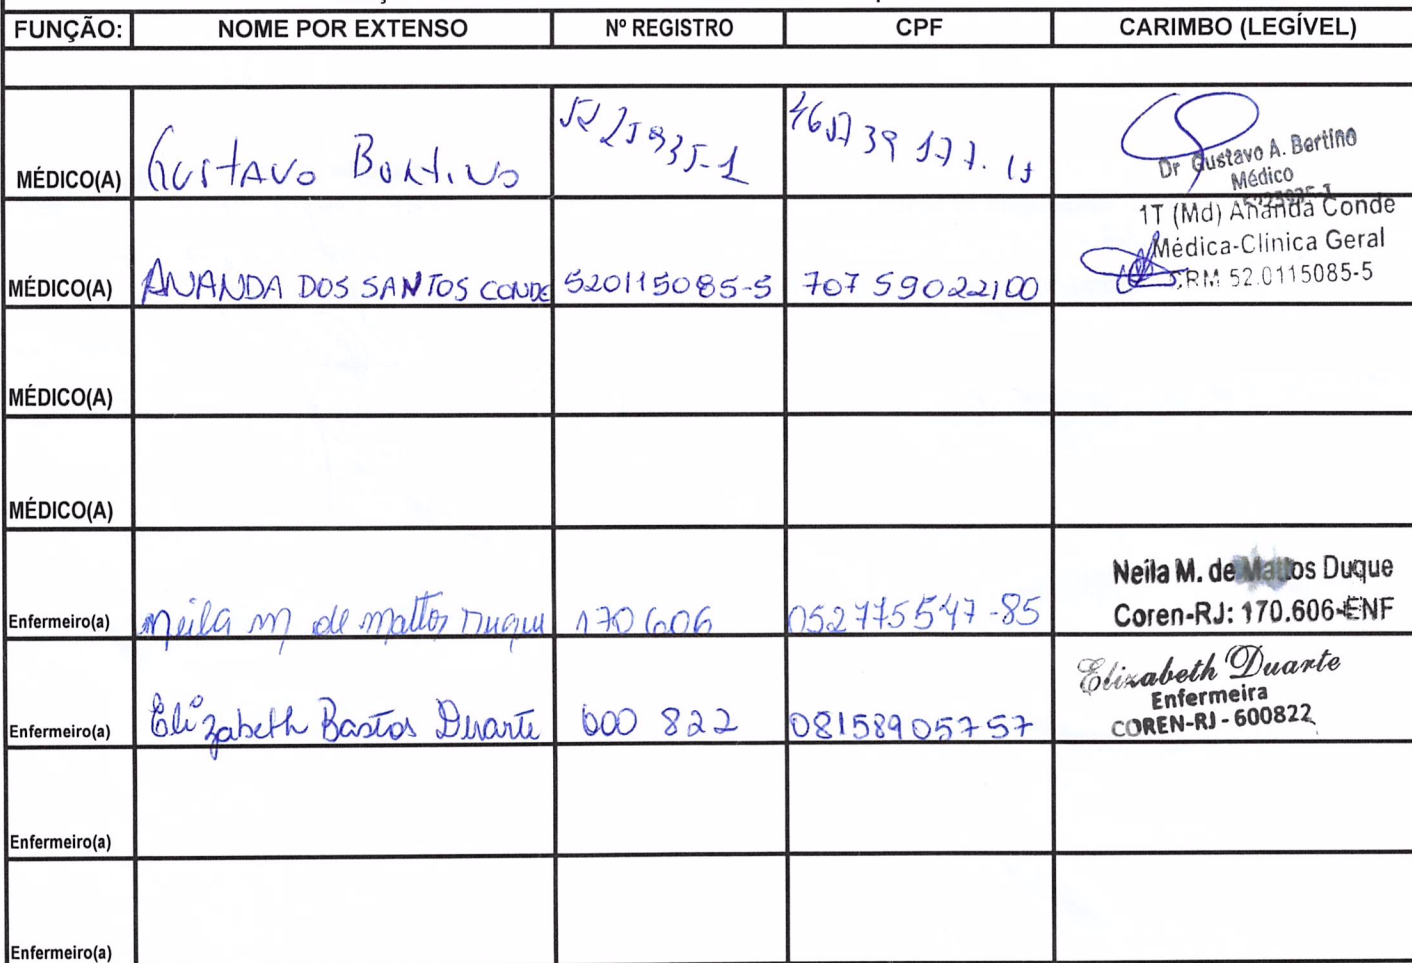 FUNÇÃO: NOME POR EXTENSO Nº REGISTRO CPF CARIMBO (LEGÍVEL)
MÉDICO(A) Gustavo Bertino
Dr Gustavo A. Bertino
Médico
MÉDICO(A) ANANDA DOS SANTOS CONDE 520115085-5 707 59022100
1T (Md) Ananda Conde
Médica-Clínica Geral
CRM 52.0115085-5
MÉDICO(A)
MÉDICO(A)
Enfermeiro(a) Neila M de Mattos Duque 170606 052775547-85
Neila M. de Mattos Duque
Coren-RJ: 170.606-ENF
Enfermeiro(a) Elizabeth Bastos Duarte 600 822 08158905757
Elizabeth Duarte
Enfermeira
COREN-RJ - 600822
Enfermeiro(a)
Enfermeiro(a)